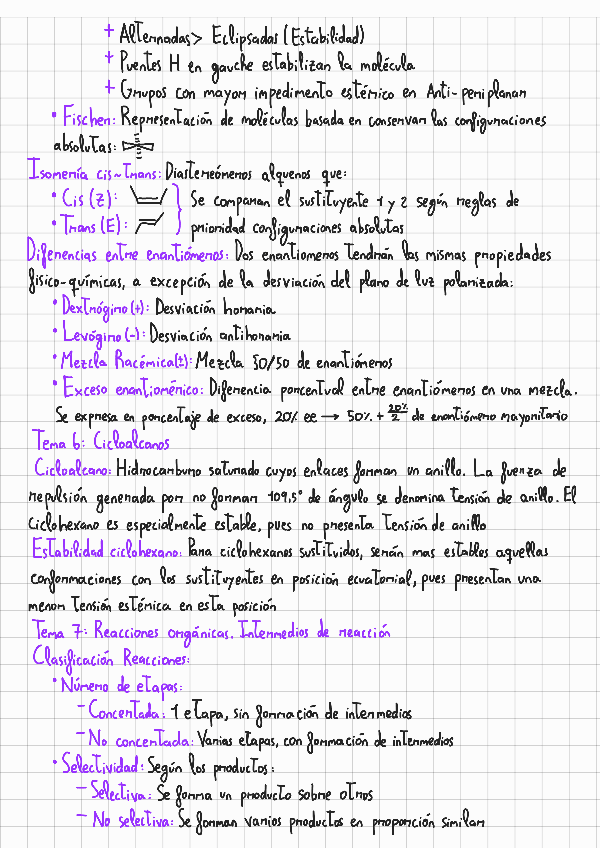 + Alternadas > Eclipsadas (Estabilidad)
+ Puentes H en gauche estabilizan la molécula
+ Grupos con mayor impedimento estérico en Anti-periplanar
• Fischer: Representación de moléculas basada en conservar las configuraciones
absolutas:
Isomería cis-trans: Diastereómeros alquenos que:
• Cis (Z):
• Trans (E):
Se comparan el sustituyente 1 y 2 según reglas de
prioridad configuraciones absolutas
Diferencias entre enantiómeros: Dos enantiomeros tendrán las mismas propiedades
físico-químicas, a excepción de la desviación del plano de luz polarizada:
• Dextrógiro (+): Desviación horaria
• Levógiro (-): Desviación antihoraria
• Mezcla Racémica(±): Mezcla 50/50 de enantiómeros
• Exceso enantiomérico: Diferencia porcentual entre enantiómeros en una mezcla.
Se expresa en porcentaje de exceso, 20% ee → 50% + 20%/2 de enantiómero mayoritario
Tema 6: Cicloalcanos
Cicloalcano: Hidrocarburo saturado cuyos enlaces forman un anillo. La fuerza de
repulsión generada por no formar 109,5° de ángulo se denomina tensión de anillo. El
Ciclohexano es especialmente estable, pues no presenta tensión de anillo
Estabilidad ciclohexano: Para ciclohexanos sustituidos, serán mas estables aquellas
conformaciones con los sustituyentes en posición ecuatorial, pues presentan una
menor tensión estérica en esta posición
Tema 7: Reacciones orgánicas. Intermedios de reacción
Clasificación Reacciones:
• Número de etapas:
- Concertada: 1 etapa, sin formación de intermedios
- No concertada: Varias etapas, con formación de intermedios
• Selectividad: Según los productos:
- Selectiva: Se forma un producto sobre otros
- No selectiva: Se forman varios productos en proporción similar